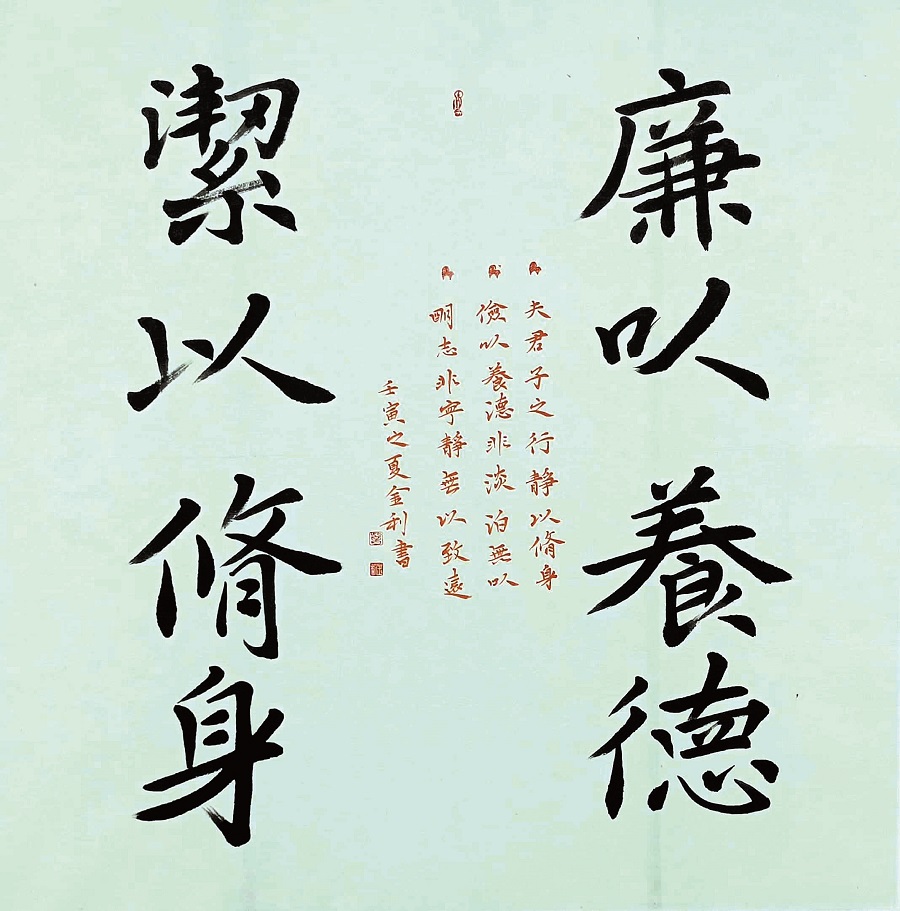 廉以養德
夫君子之行靜以脩身
儉以養德非淡泊無以
明志非寧靜無以致遠
壬寅之夏金利書
潔以脩身